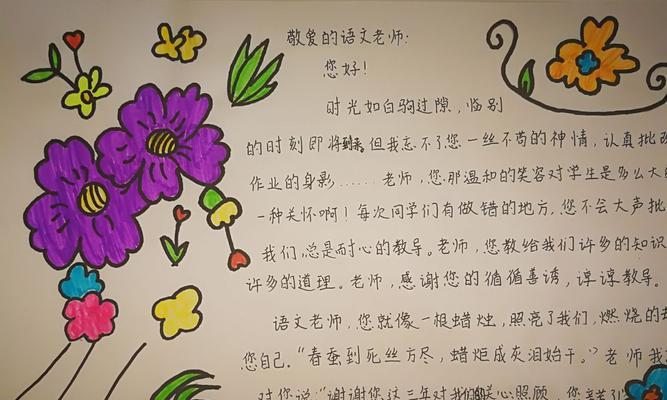 敬爱的语文老师:
您好!
时光如白驹过隙,临别
的时刻即将到来,但我忘不了您一丝不苟的神情,认真批改
作业的身影……老师,您那温和的笑容对学生是多么大的
一种关怀啊!每次同学们有做错的地方,您不会大声批
我们,总是耐心的教导。老师,您教给我们许多的知识
许多的道理。老师,感谢您的循循善诱,谆谆教导。
语文老师,您就像一根蜡烛,照亮了我们,燃烧的却
您自己。“春蚕到死丝方尽,蜡炬成灰泪始干。”老师我
对您说:“谢谢您这三年对我们的关心照顾,您辛苦了